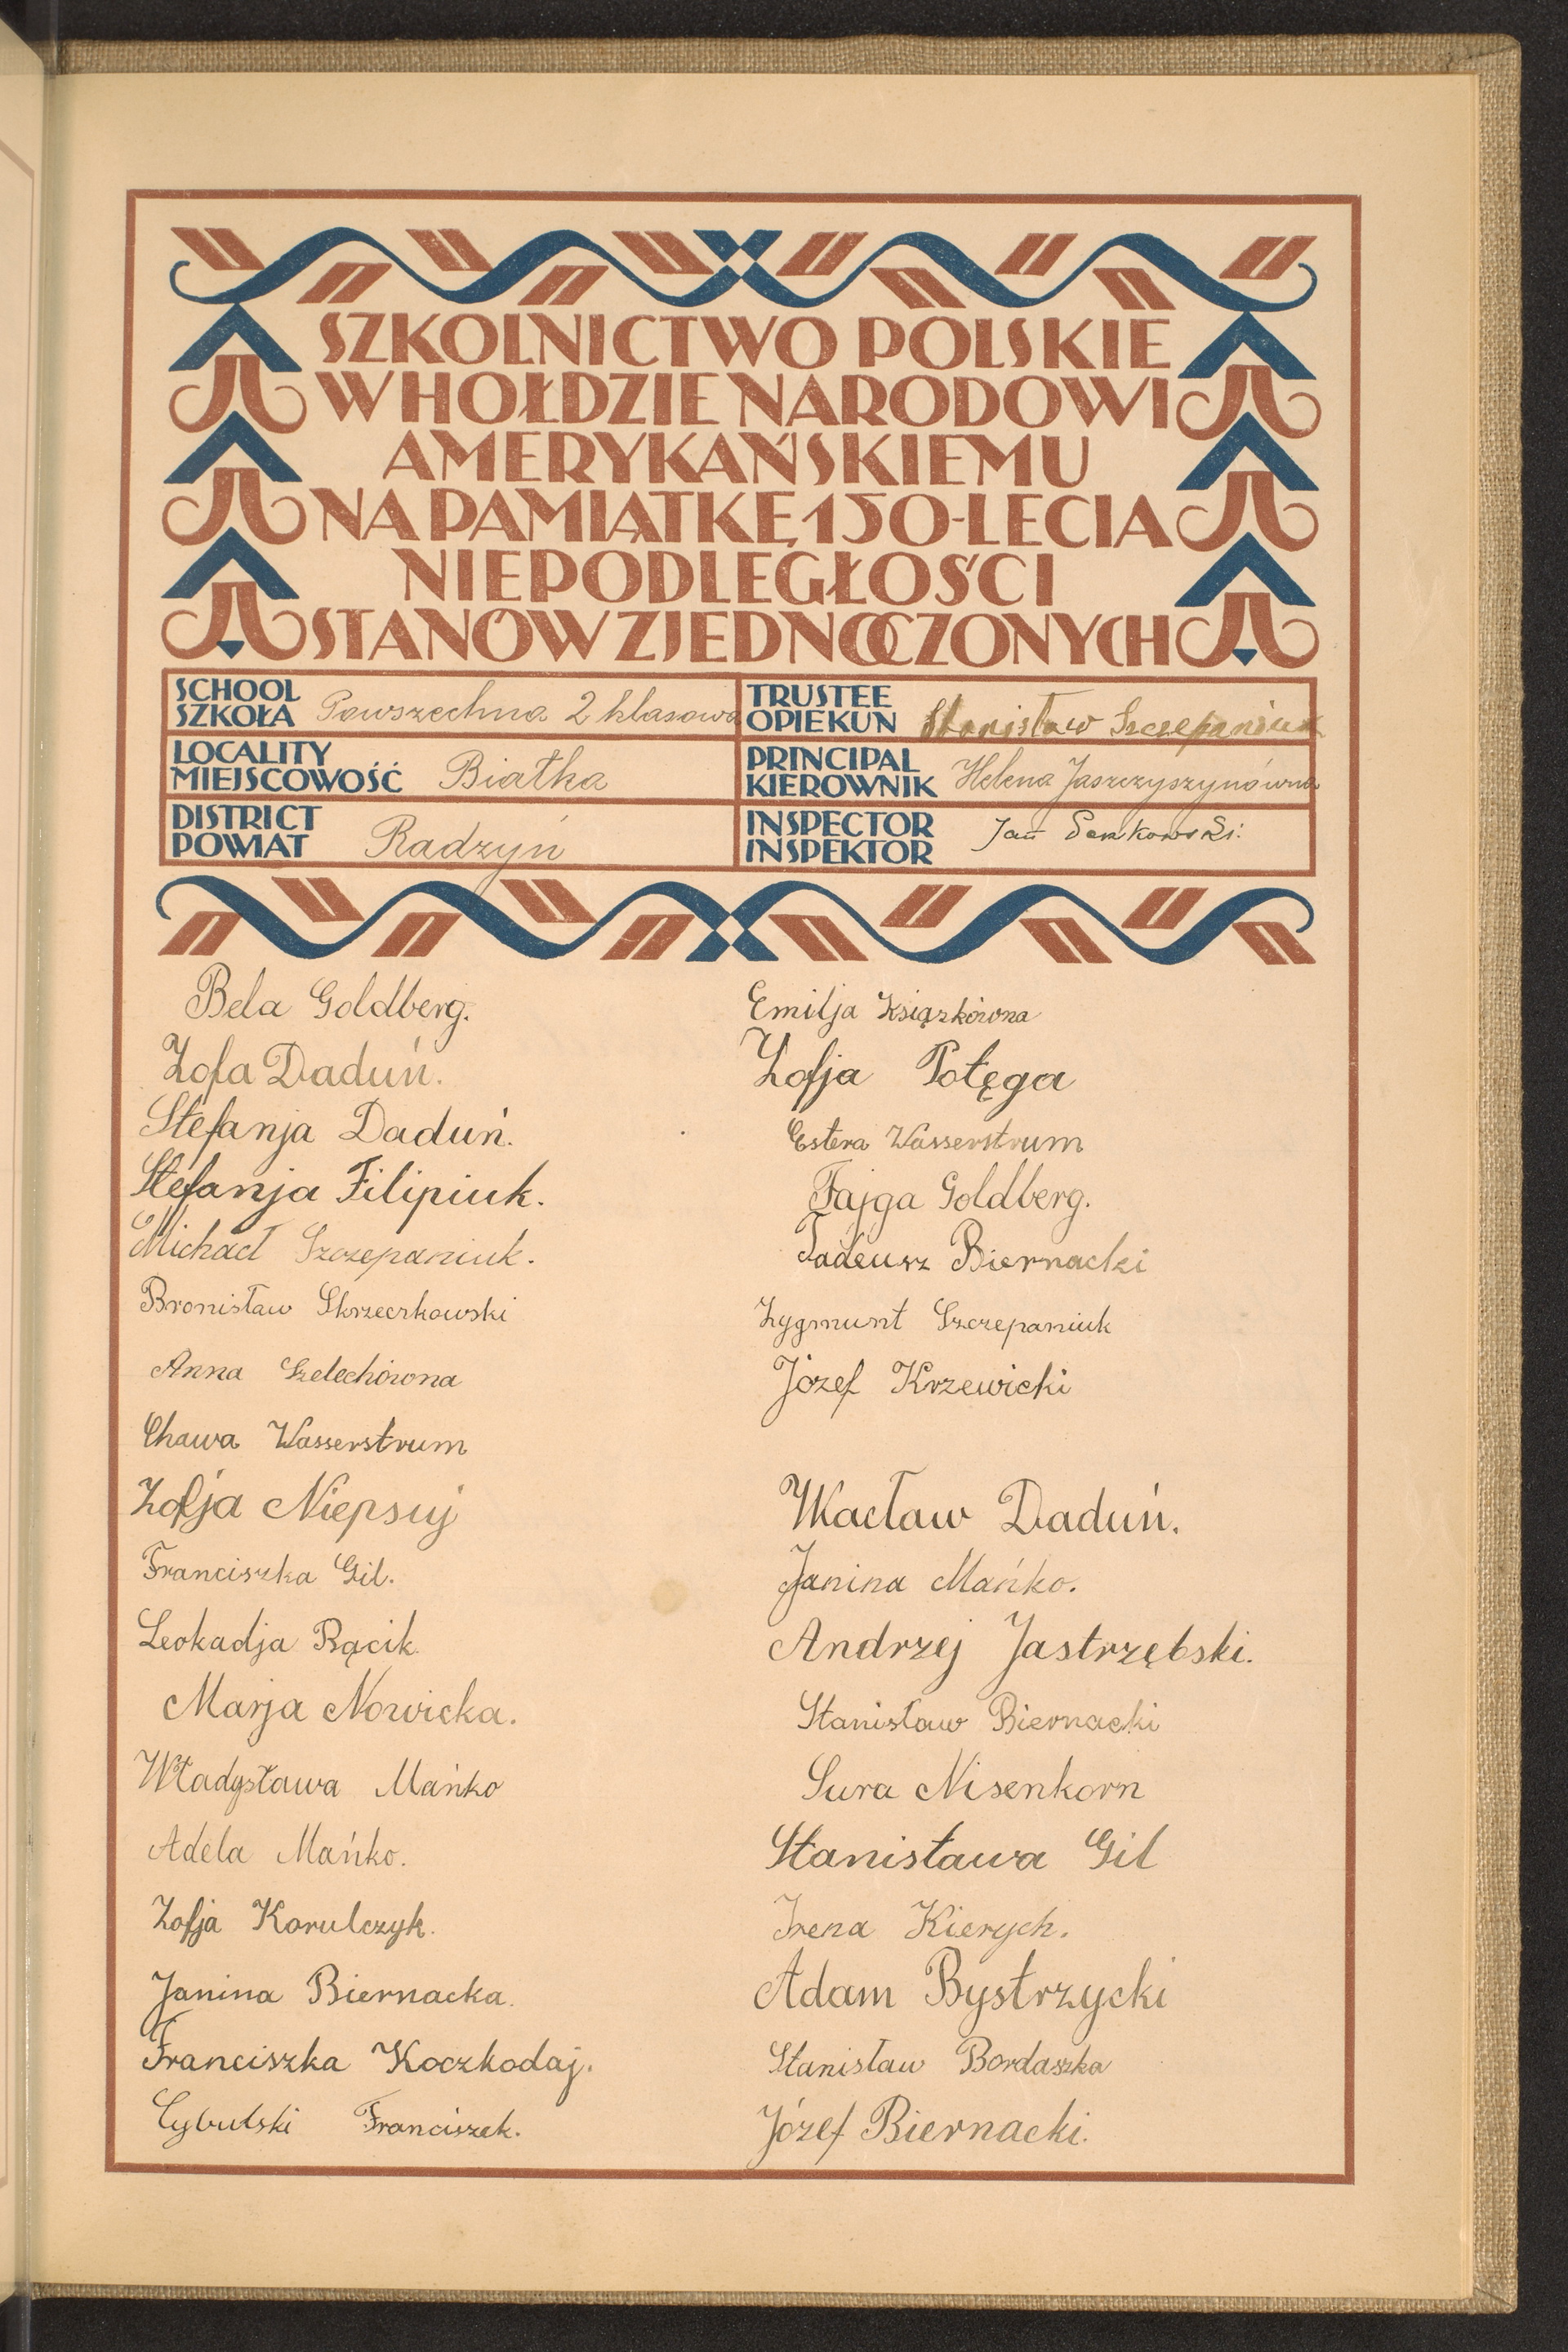 SZKOLNICTWO POLSKIE
W HOŁDZIE NARODOWI
AMERYKAŃSKIEMU
NA PAMIĄTKĘ 150-LECIA
NIEPODLEGŁOŚCI
STANÓW ZJEDNOCZONYCH
SCHOOL
SZKOŁA Powszechna 2 klasowa
TRUSTEE
OPIEKUN Stanisław Szczepaniuk
LOCALITY
MIEJSCOWOŚĆ Białka
PRINCIPAL
KIEROWNIK Helena Jaszczyszynówna
DISTRICT
POWIAT Radzyń
INSPECTOR
INSPEKTOR Jan
Bela Goldberg.
Zofa Daduń.
Stefanja Daduń.
Stefanja Filipiuk.
Michał Szczepaniuk.
Bronisław Skrzeczkowski
Anna Szelechówna
Chawa Wasserstrum
Zofja Niepsuj
Franciszka Gil.
Leokadja Bącik.
Marja Nowicka.
Władysława Mańko
Adela Mańko.
Zofja Korulczyk.
Janina Biernacka.
Franciszka Koczkodaj.
Cybulski Franciszek.
Emilja Książkówna
Zofja Potęga
Estera Wasserstrum
Fajga Goldberg.
Tadeusz Biernacki
Zygmunt Szczepaniuk
Józef Krzewicki
Wacław Daduń.
Janina Mańko.
Andrzej Jastrzębski.
Stanisław Biernacki
Sura Nisenkorn
Stanisława Gil
Irena Kierych.
Adam Bystrzycki
Stanisław Bordaszka
Józef Biernacki.